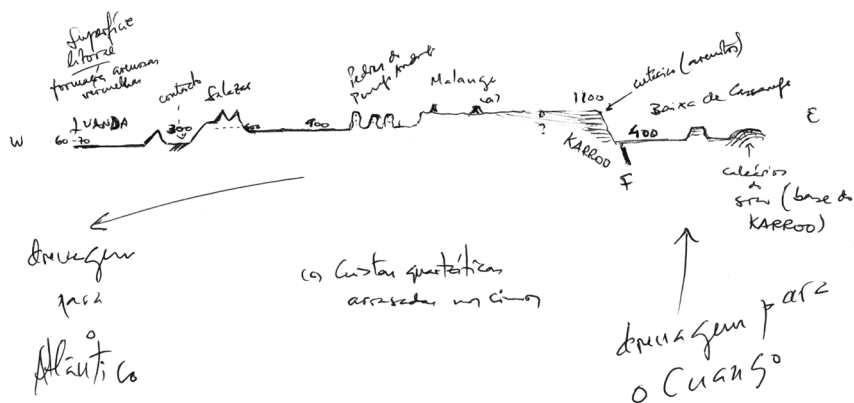 Superfície
litoral
formação arenosas
vermelhas
W
LUANDA
60-70
contacto
300
Salazar
600
900
Pedras de
Pungo Andongo
Malange
(a)
?
KARROO
1100
cretácico (arenitos)
Baixa de Cassange
400
F
E
calcários
do
(base do
KARROO)
drenagem
para
o
Atlântico
(a) Cristas quartzíticas
arrasadas no cimo
drenagem para
o Cuango